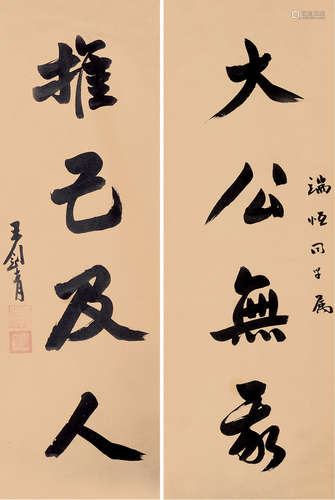 大公無我
端恒同学属
推己及人
王劍青